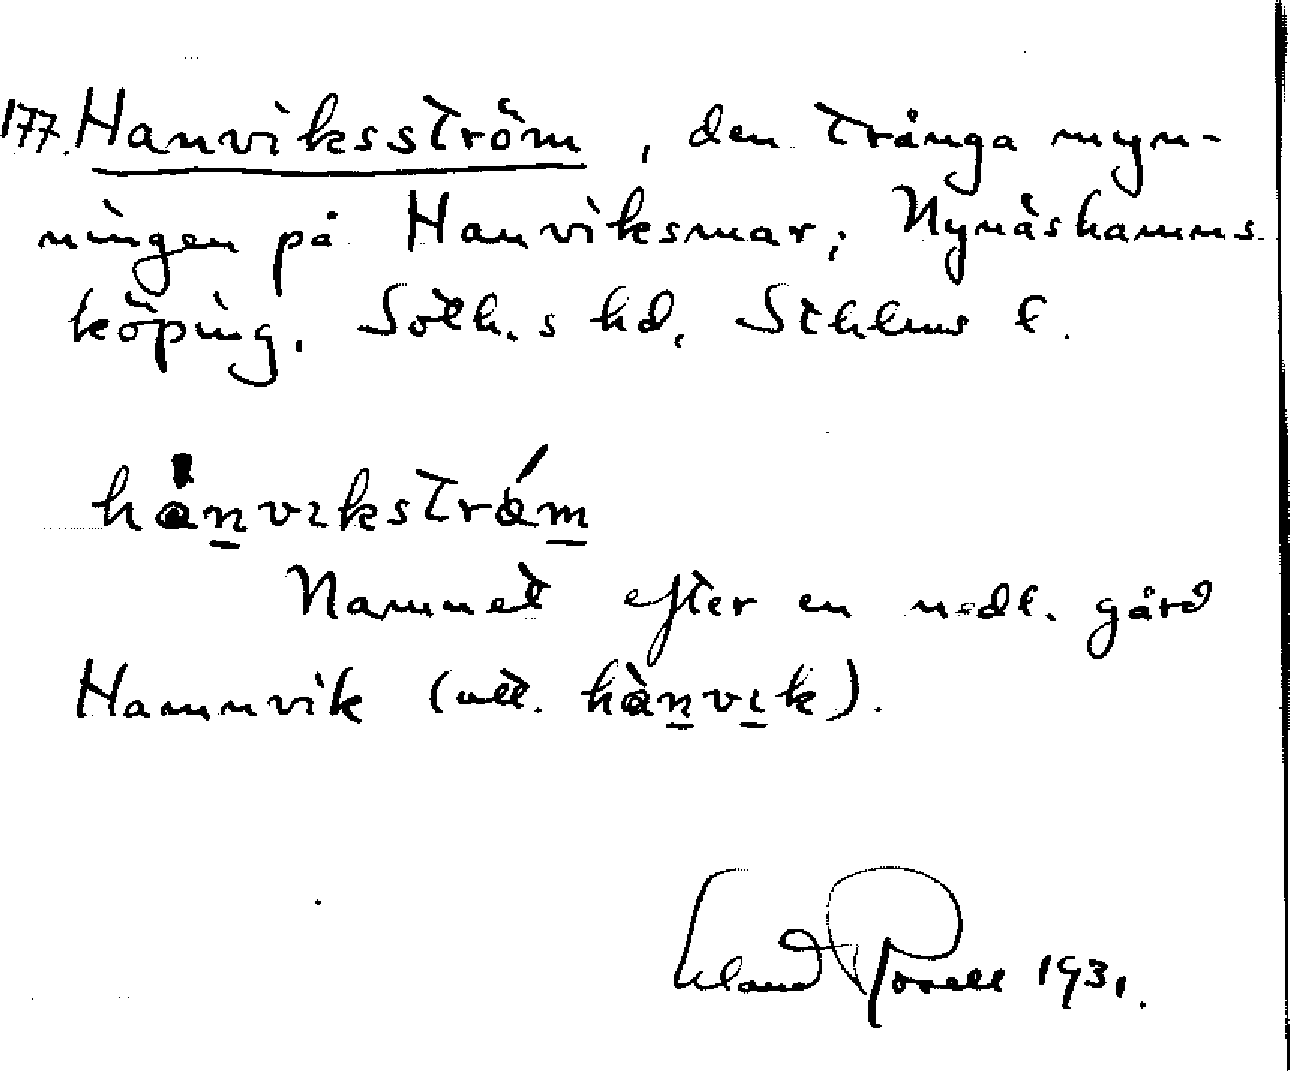 177. Hanviksström, den trånga myn-
ningen på Hanviksmar, Nynäshamns
köping. Soth.s hd, Sthlms l.
hànvɪkstrǿm
Namnet efter en nedl. gård
Hamnvik (utt. hànvɪk).
Erland Rosell 1931.